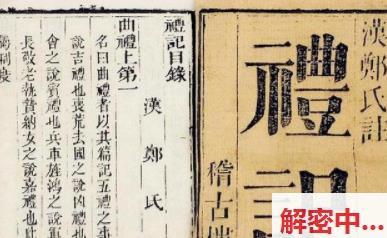 漢鄭氏註
禮記
稽古樓
禮記目錄
漢鄭氏
曲禮上第一
名曰曲禮者以其篇記五禮之事
說吉禮也喪荒去國之說凶禮也
會之說賓禮也兵車旌鴻之說軍
長敬老執贄納女之說嘉禮也此
解密中...